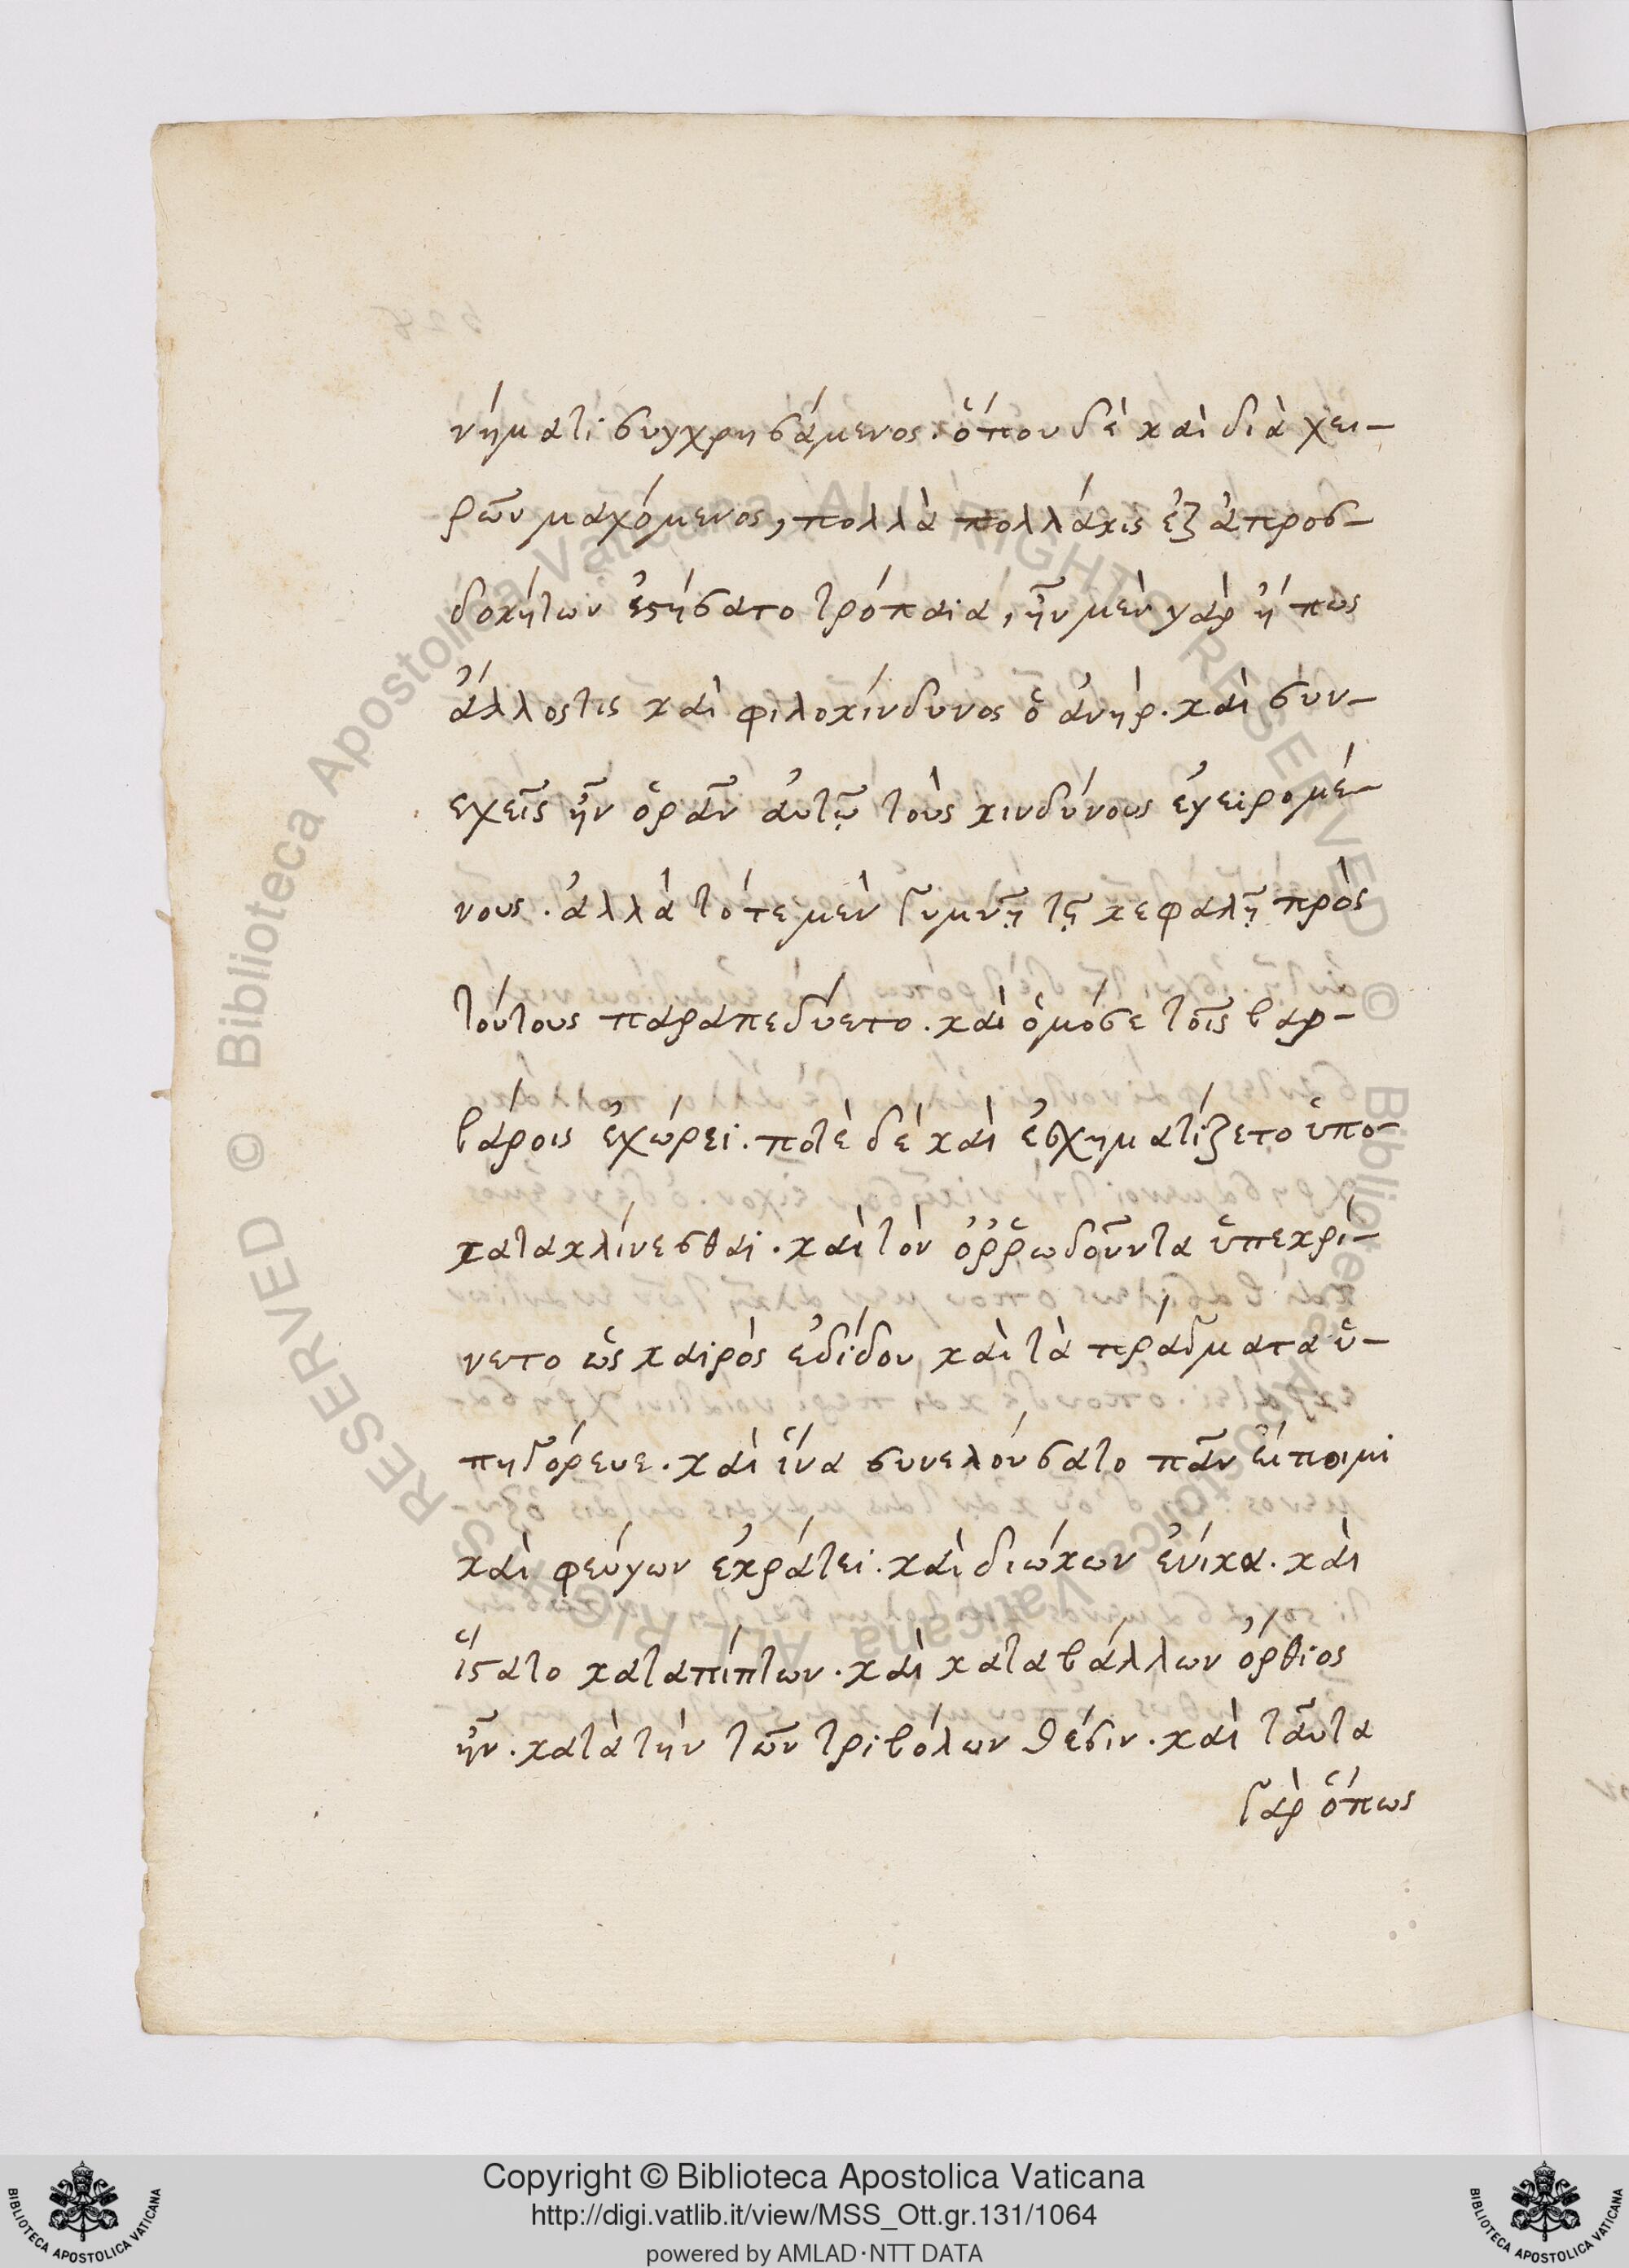 νήματι συγχρησάμενος. ὅπου δὲ καὶ διὰ χει-
ρῶν μαχόμενος, πολλὰ πολλάκις ἐξ ἀπροσ-
δοκήτων ἐστήσατο τρόπαια, ἦν μὲν γὰρ ἤ πως
ἄλλοστις καὶ φιλοκίνδυνος ὁ ἀνὴρ. καὶ συν-
εχεῖς ἦν ὁρᾶν αὐτῶ τοὺς κινδύνους ἐγειρομέ-
νους. ἀλλὰ τότε μὲν γυμνῇ τῇ κεφαλῇ πρὸς
τούτους παραπεδύετο. καὶ ὁμόσε τοῖς βαρ-
βάροις ἐχώρει. ποτὲ δὲ καὶ ἐσχηματίζετο ὑπο-
κατακλίνεσθαι. καὶ τὸν ὀῤῥωδοῦντα ὑπεκρί-
νετο ὡς καιρὸς ἐδίδου καὶ τὰ πράγματα ὑ-
πηγόρευε. καὶ ἵνα συνελόνσατο πᾶν εἴποιμι
καὶ φεύγων ἐκράτει. καὶ διώκων ἐνίκα. καὶ
ἵστατο καταπίπτων. καὶ καταβάλλων ὄρθιος
ἦν. κατὰ τὴν τῶν τριβόλων θέσιν. καὶ ταῦτα
γὰρ ὅπως
Copyright © Biblioteca Apostolica Vaticana
http://digi.vatlib.it/view/MSS_Ott.gr.131/1064
powered by AMLAD·NTT DATA
BIBLIOTECA APOSTOLICA VATICANA
BIBLIOTECA APOSTOLICA VATICANA
Biblioteca Apostolica Vaticana ALL RIGHTS RESERVED ©
Biblioteca Apostolica Vaticana ALL RIGHTS RESERVED ©